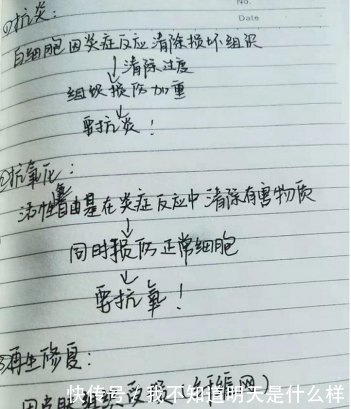 No.
Date
①抗炎：
白细胞因炎症反应清除损坏组织
↓清除过度
组织损伤加重
↓
要抗炎！
②抗氧化：
活性氧自由基在炎症反应中清除有害物质
↓
同时损伤正常细胞
↓
要抗氧！
③再生修复：
快传号：我不知道明天是什么样